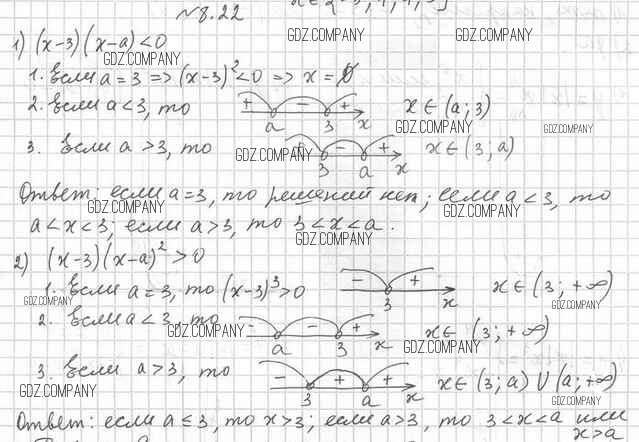 №8.22
GDZ.COMPANY GDZ.COMPANY
1) (x-3)(x-a)<0
GDZ.COMPANY
1. Если a=3 => (x-3)²<0 => x=∅
2. Если a<3, то + - + a 3 x x∈(a;3)
GDZ.COMPANY GDZ.COMPANY
3. Если a>3, то - + 3 a x x∈(3,a)
GDZ.COMPANY
Ответ: если a=3, то решений нет; если a<3, то
GDZ.COMPANY GDZ.COMPANY
a<x<3; если a>3, то 3<x<a.
GDZ.COMPANY
2) (x-3)(x-a)²>0
1. Если a=3, то (x-3)³>0 - + 3 x x∈(3;+∞)
GDZ.COMPANY GDZ.COMPANY
2. Если a<3, то - - + a 3 x x∈(3;+∞)
GDZ.COMPANY GDZ.COMPANY GDZ.COMPANY
3. Если a>3, то - + + 3 a x x∈(3;a)∪(a;+∞)
GDZ.COMPANY GDZ.COMPANY GDZ.COMPANY
Ответ: если a≤3, то x>3; если a>3, то 3<x<a или
x>a